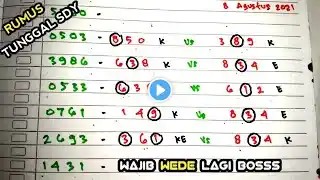 RUMUS
TUNGGAL SDY
8 Agustus 2021
0503 - 850 K VS 389 K
3986 - 638 K VS 834 E
0533 - 63 VS 612 E
0761 - 149 K VS 834 E
2693 - 361 KE VS 834 K
1431 -
WAJIB WEDE LAGI BOSSS